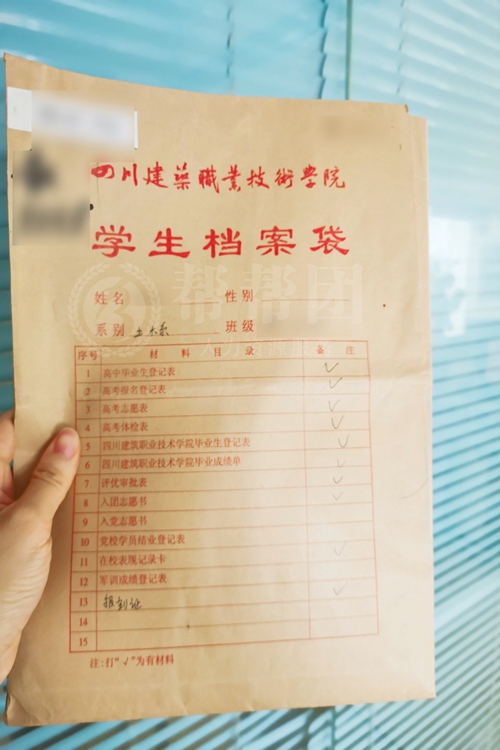 四川建築職業技術學院
学生档案袋
帮帮团
姓名 性别
系别 土木系 班级
序号 材料目录 备注
1 高中毕业生登记表 ✓
2 高考报名登记表 ✓
3 高考志愿表 ✓
4 高考体检表 ✓
5 四川建筑职业技术学院毕业生登记表 ✓
6 四川建筑职业技术学院毕业成绩单 ✓
7 评优审批表 ✓
8 入团志愿书 ✓
9 入党志愿书
10 党校学员结业登记表
11 在校表现记录卡 ✓
12 军训成绩登记表
13 报到证 ✓
14
15
注:打“√”为有材料